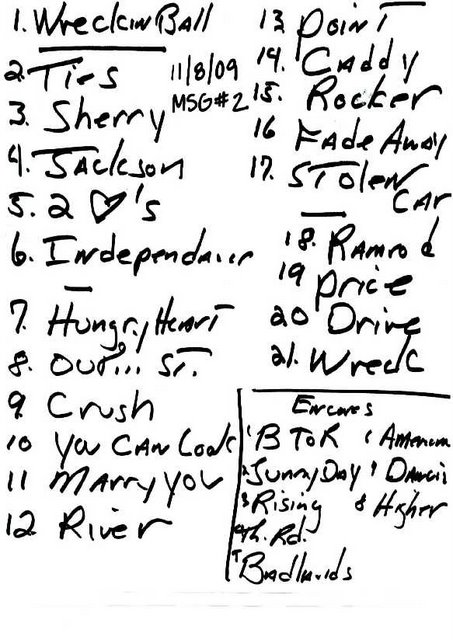 1. Wreckin Ball
2. Ties
11/8/09
MSG #2
3. Sherry
4. Jackson
5. 2 ♡'s
6. Independance
7. Hungry Heart
8. Out... St.
9. Crush
10 You Can Look
11 Marry You
12. River
13. Point
14. Caddy
15. Rocker
16 Fade Away
17. Stolen
Car
18. Ramrod
19 Price
20 Drive
21. Wreck
Encores
1 B To R
2 Sunny Day
3 Rising
4 Th. Rd.
Badlands
American
Dancin
8 Higher